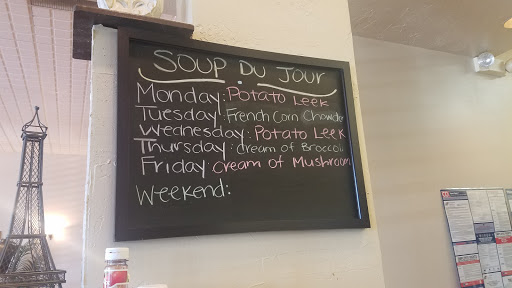 SOUP DU JOUR
Monday: Potato Leek
Tuesday: French Corn Chowder
Wednesday: Potato Leek
Thursday: cream of Broccoli
Friday: cream of Mushroom
Weekend: